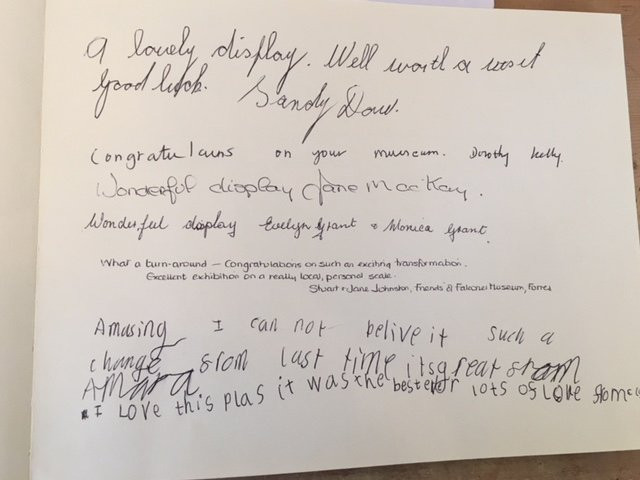 A lovely display. Well worth a visit
Good luck. Sandy Dow.
Congratulauns on your museum. Dorothy Kelly.
Wonderful display Jane MacKay.
Wonderful display Evelyn Grant & Monica Grant.
What a turn-around – Congratulations on such an exciting transformation.
Excellent exhibition on a really local, personal scale.
Stuart & Jane Johnston, Friends of Falconer Museum, Forres
Amazing I can not belive it such a
change srom last time its great srom
Amara
I Love this plas it was the best ever lots os Love srom